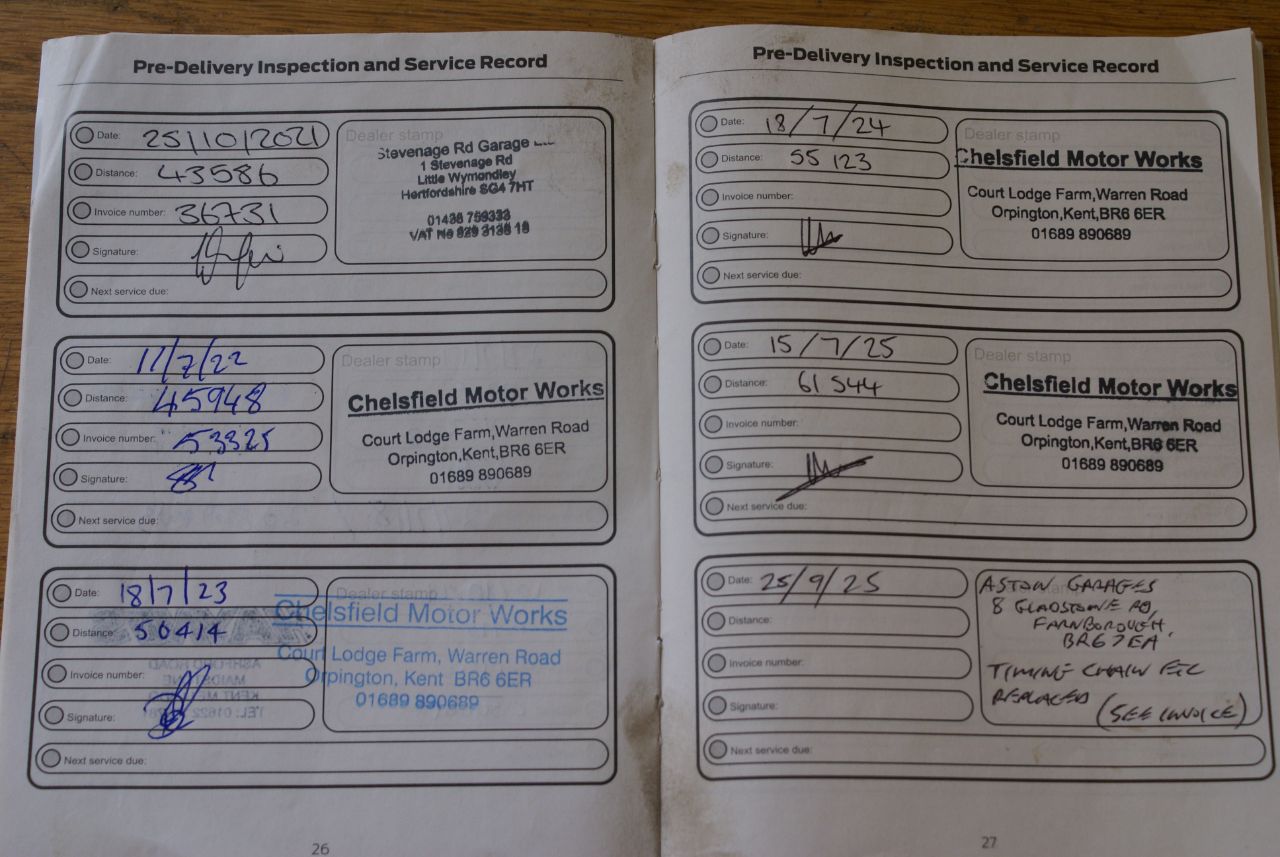 Pre-Delivery Inspection and Service Record
Date: 25/10/2021
Distance: 43586
Invoice number: 36731
Signature:
Next service due:
Dealer stamp
Stevenage Rd Garage
1 Stevenage Rd
Little Wymondley
Hertfordshire SG4 7HT
01438 759333
VAT No 829 3138 18
Date: 11/7/22
Distance: 45948
Invoice number: 53325
Signature:
Next service due:
Dealer stamp
Chelsfield Motor Works
Court Lodge Farm,Warren Road
Orpington,Kent,BR6 6ER
01689 890689
Date: 18/7/23
Distance: 50414
Invoice number:
Signature:
Next service due:
Dealer stamp
Chelsfield Motor Works
Court Lodge Farm, Warren Road
Orpington, Kent BR6 6ER
01689 890689
ASHFORD ROAD
MAIDSTONE
KENT
TEL: 01622
26
Pre-Delivery Inspection and Service Record
Date: 18/7/24
Distance: 55 123
Invoice number:
Signature:
Next service due:
Dealer stamp
Chelsfield Motor Works
Court Lodge Farm,Warren Road
Orpington,Kent,BR6 6ER
01689 890689
Date: 15/7/25
Distance: 61 544
Invoice number:
Signature:
Next service due:
Dealer stamp
Chelsfield Motor Works
Court Lodge Farm,Warren Road
Orpington,Kent,BR6 6ER
01689 890689
Date: 25/9/25
Distance:
Invoice number:
Signature:
Next service due:
ASTON GARAGES
8 GLADSTONE RD,
FARNBOROUGH,
BR6 7EA
TIMING CHAIN ETC
REPLACED (SEE INVOICE)
27